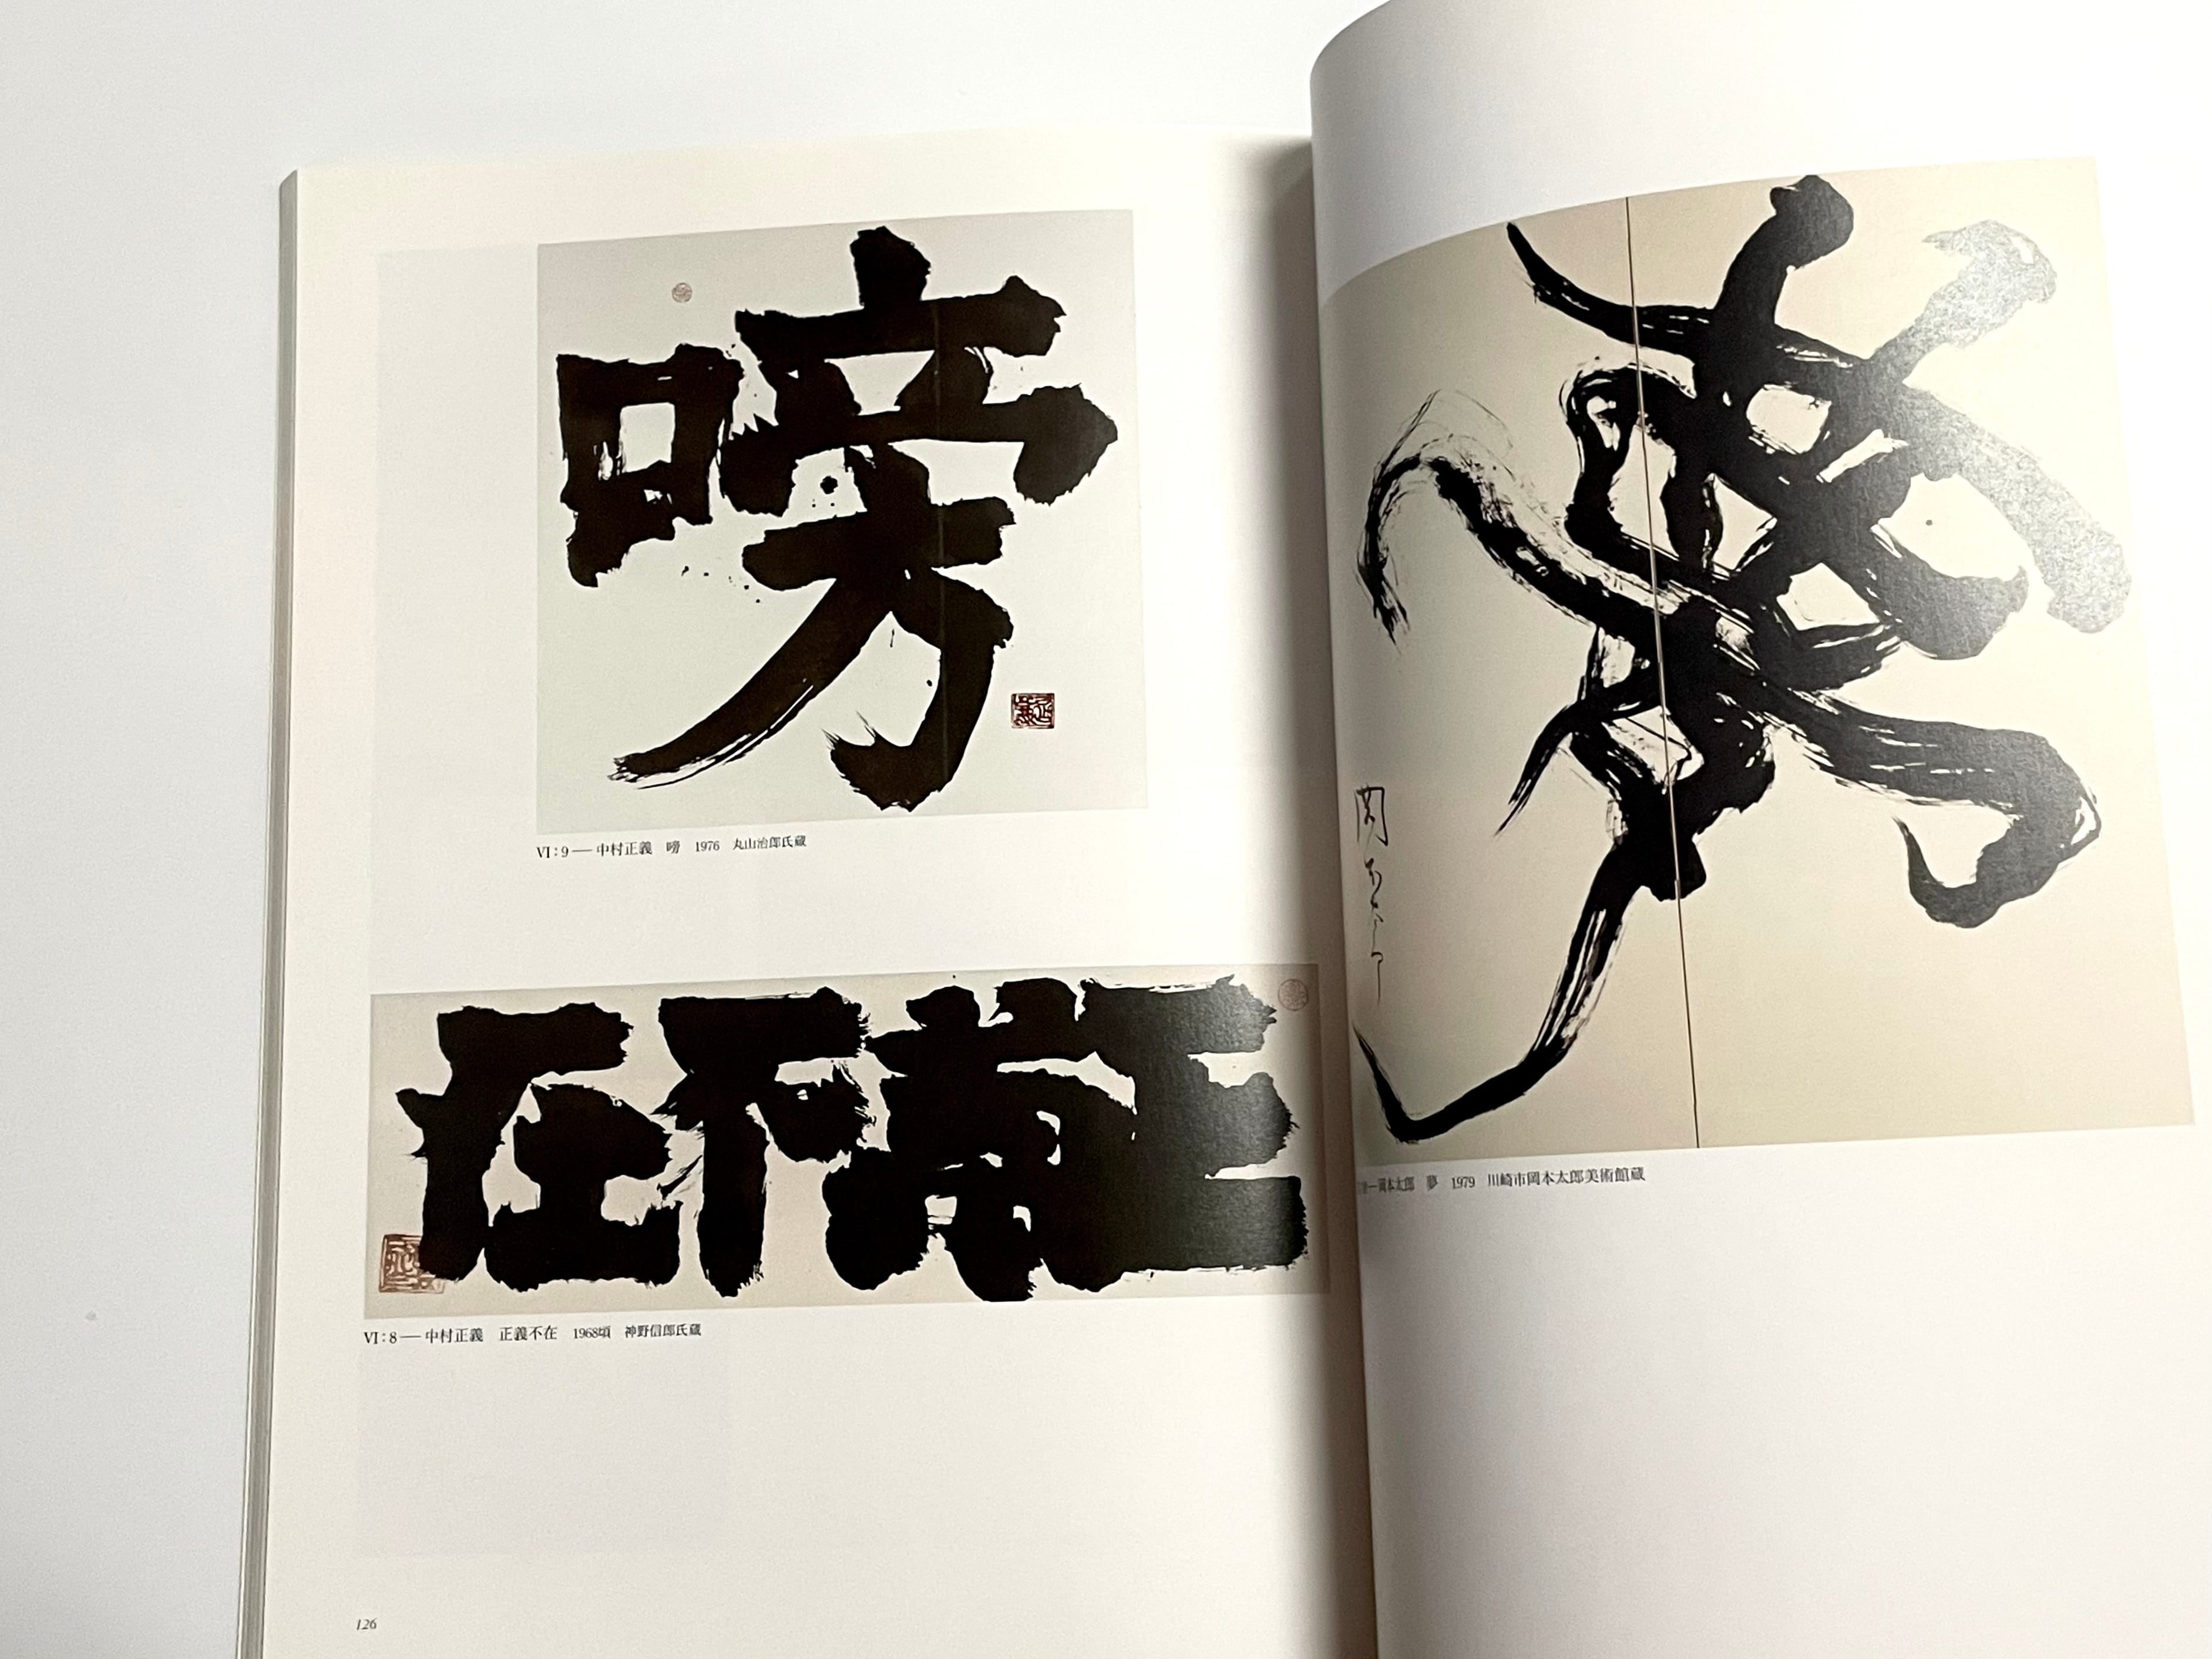 嗙
VI：9 ― 中村正義　嗙　1976　丸山治郎氏蔵
在不義正
VI：8 ― 中村正義　正義不在　1968頃　神野信郎氏蔵
126
夢
岡本太郎
―岡本太郎　夢　1979　川崎市岡本太郎美術館蔵